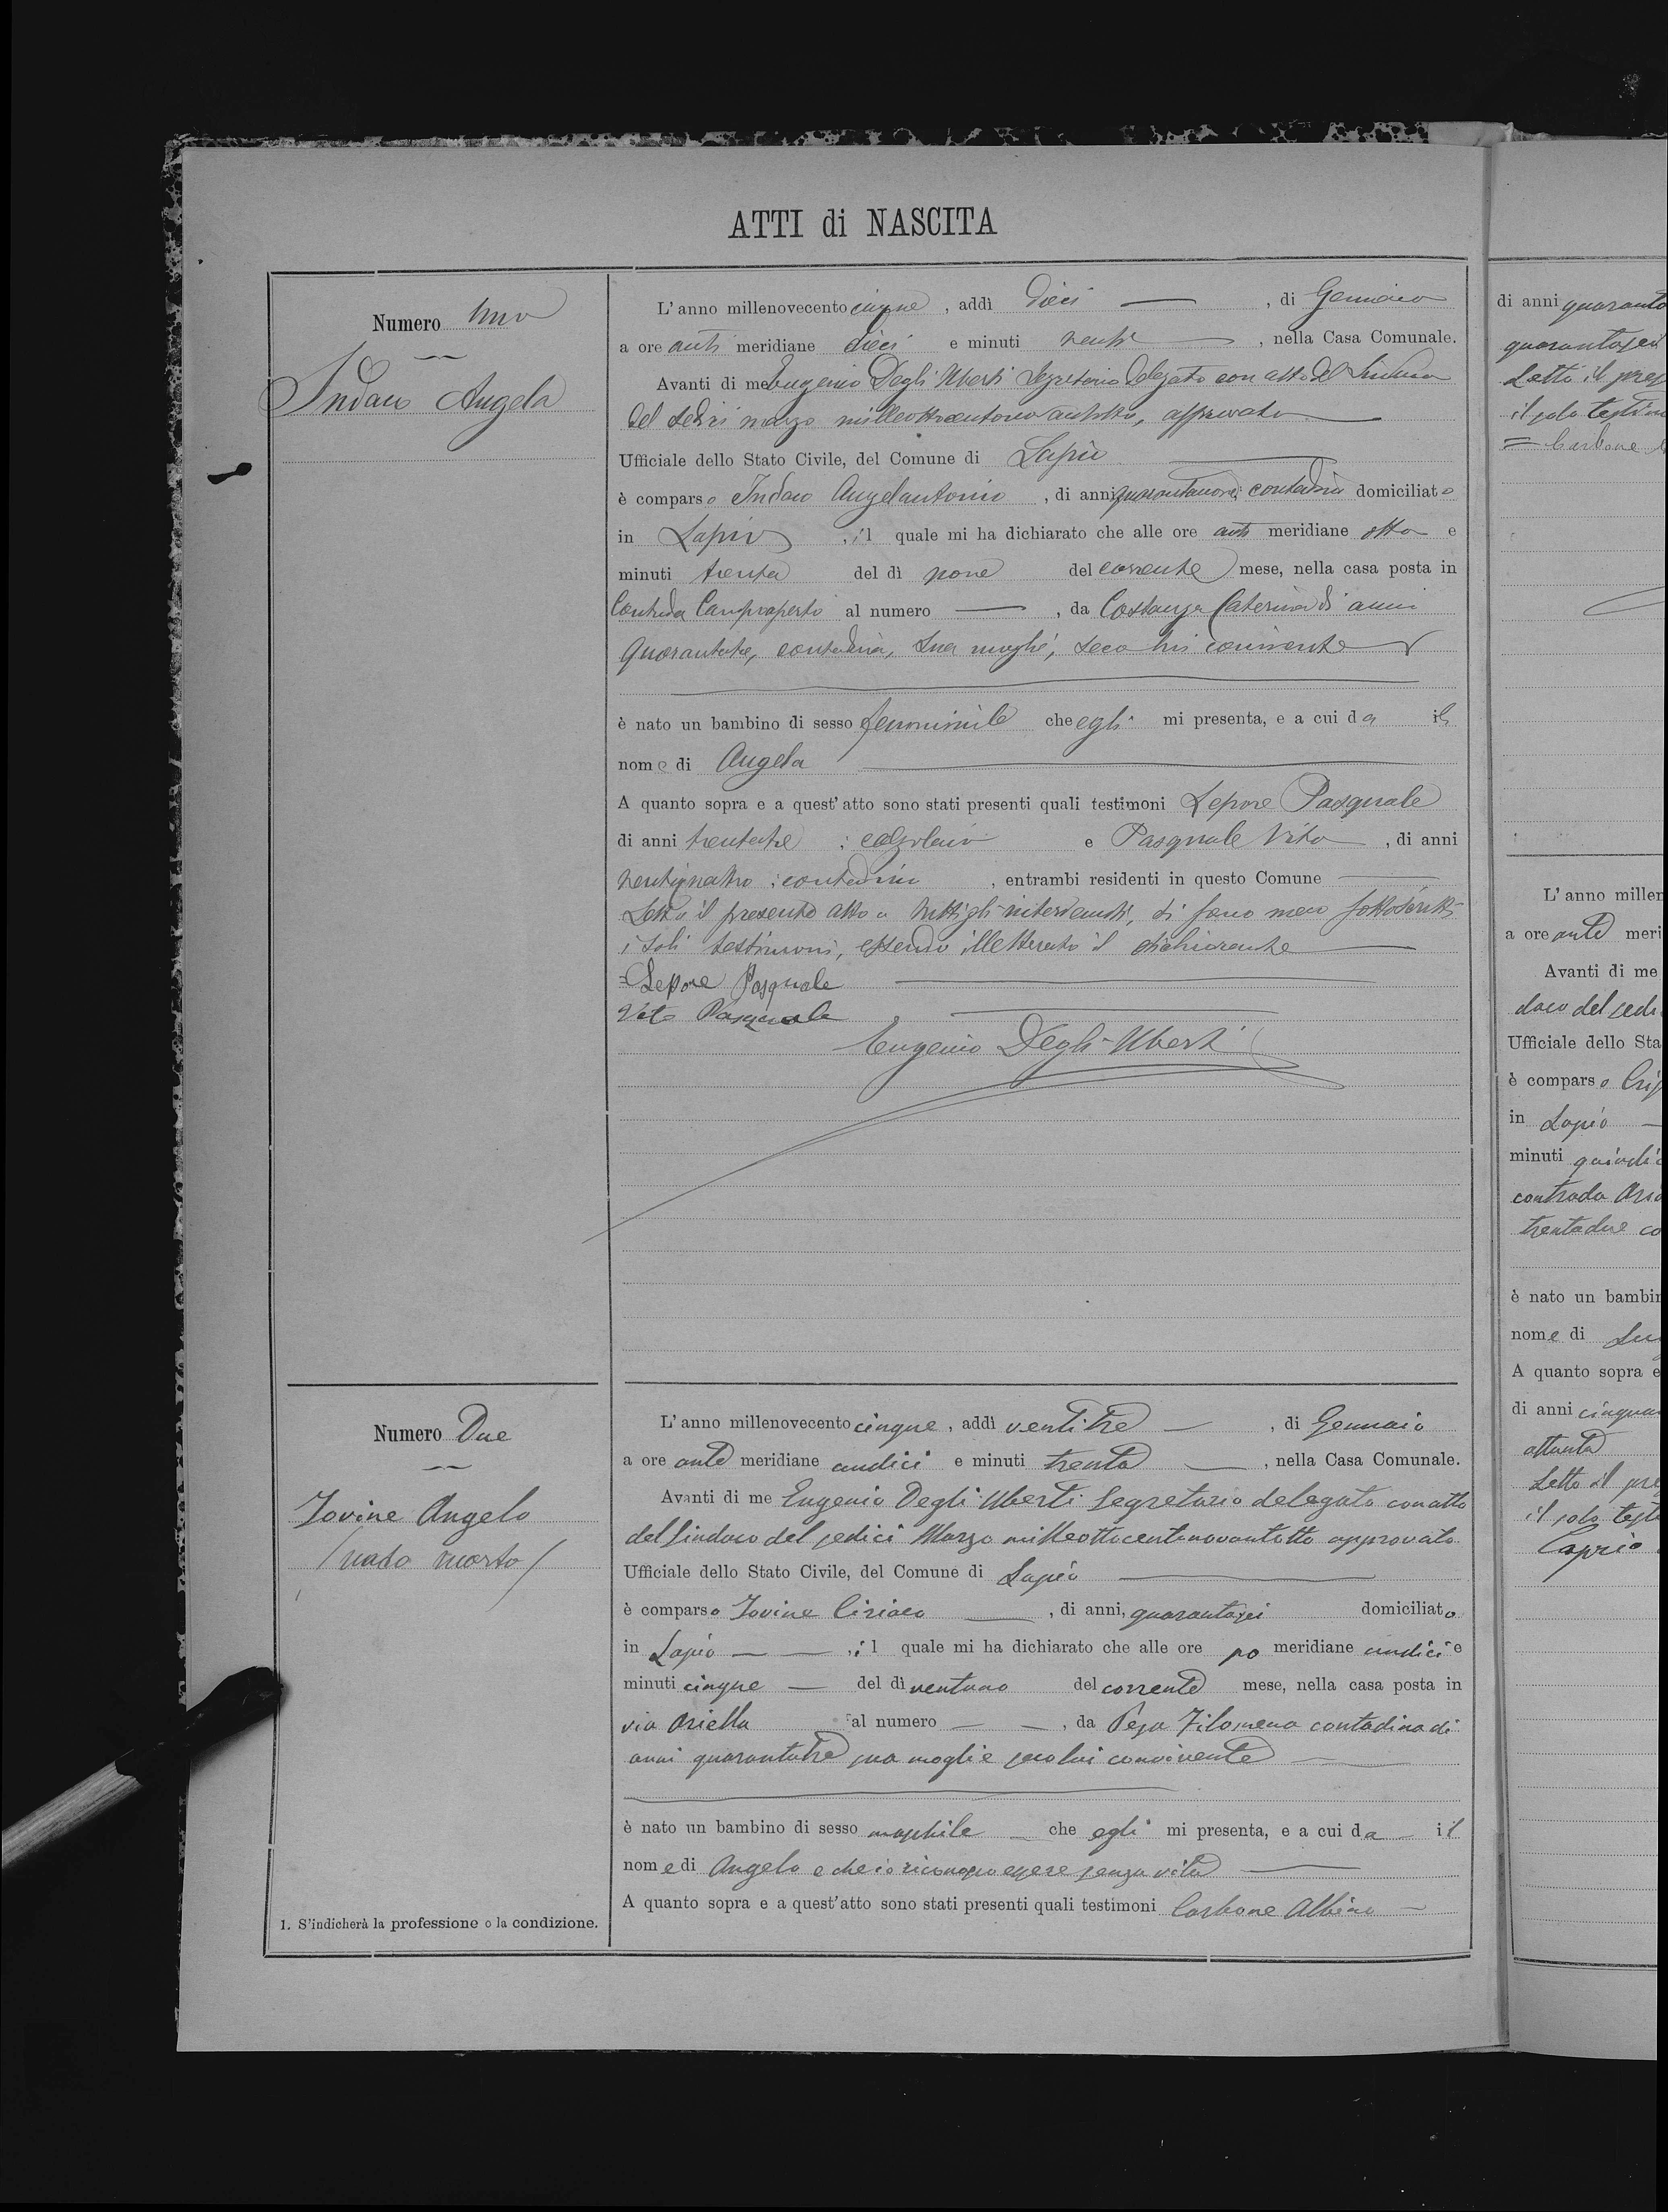 ATTI di NASCITA
Numero Uno
Indaco Angela
L'anno millenovecento cinque, addì dieci, di Gennaio
a ore anti meridiane dieci e minuti venti, nella Casa Comunale.
Avanti di me Eugenio Degli Uberti Segretario Delegato con atto del Sindaco
del sedici marzo milleottocentonovantotto, approvato
Ufficiale dello Stato Civile, del Comune di Lapio
è comparso Indaco Angelantonio, di anni quarantanove, contadino domiciliato
in Lapio, il quale mi ha dichiarato che alle ore anti meridiane otto e
minuti trenta del dì nove del corrente mese, nella casa posta in
Contrada Campoaperto al numero, da Costanza Caterina di anni
quarantatre, contadina, sua moglie, seco lui convivente
è nato un bambino di sesso femminile che egli mi presenta, e a cui da il
nome di Angela
A quanto sopra e a quest'atto sono stati presenti quali testimoni Lepore Pasquale
di anni trentatre, calzolaio e Pasquale Vito, di anni
ventiquattro, contadino, entrambi residenti in questo Comune
Letto il presente atto a tutti gli intervenuti, si sono meco sottoscritti
i soli testimoni, essendo illetterato il dichiarante
=Lepore Pasquale
Vito Pasquale
Eugenio Degli-Uberti
Numero Due
Iovine Angelo
/nato morto/
L'anno millenovecento cinque, addì ventitre, di Gennaio
a ore ante meridiane undici e minuti trenta, nella Casa Comunale.
Avanti di me Eugenio Degli Uberti Segretario delegato con atto
del Sindaco del sedici Marzo milleottocentonovantotto approvato
Ufficiale dello Stato Civile, del Comune di Lapio
è comparso Iovine Ciriaco, di anni, quarantasei domiciliato
in Lapio, il quale mi ha dichiarato che alle ore po meridiane undici e
minuti cinque del dì ventuno del corrente mese, nella casa posta in
via Ariella al numero, da Pepa Filomena contadina di
anni quarantatre sua moglie seco lui convivente
è nato un bambino di sesso maschile che egli mi presenta, e a cui da il
nome di Angelo e che io riconosco essere senza vita
A quanto sopra e a quest'atto sono stati presenti quali testimoni Carbone Albino
1. S'indicherà la professione o la condizione.
di anni quaranta
quarantasei
Letto il pres
il solo testimo
= Carbone
L'anno millen
a ore ante meri
Avanti di me
daco del sedi
Ufficiale dello Sta
è comparso
in Lapio
minuti quindic
contrada
trentadue co
è nato un bambin
nome di
A quanto sopra e
di anni cinquan
ottanta
Letto il pre
il solo teste
Caprio